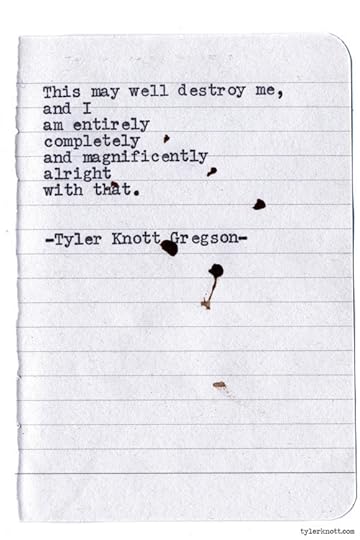 This may well destroy me,
and I
am entirely
completely
and magnificently
alright
with that.
-Tyler Knott Gregson-
tylerknott.com